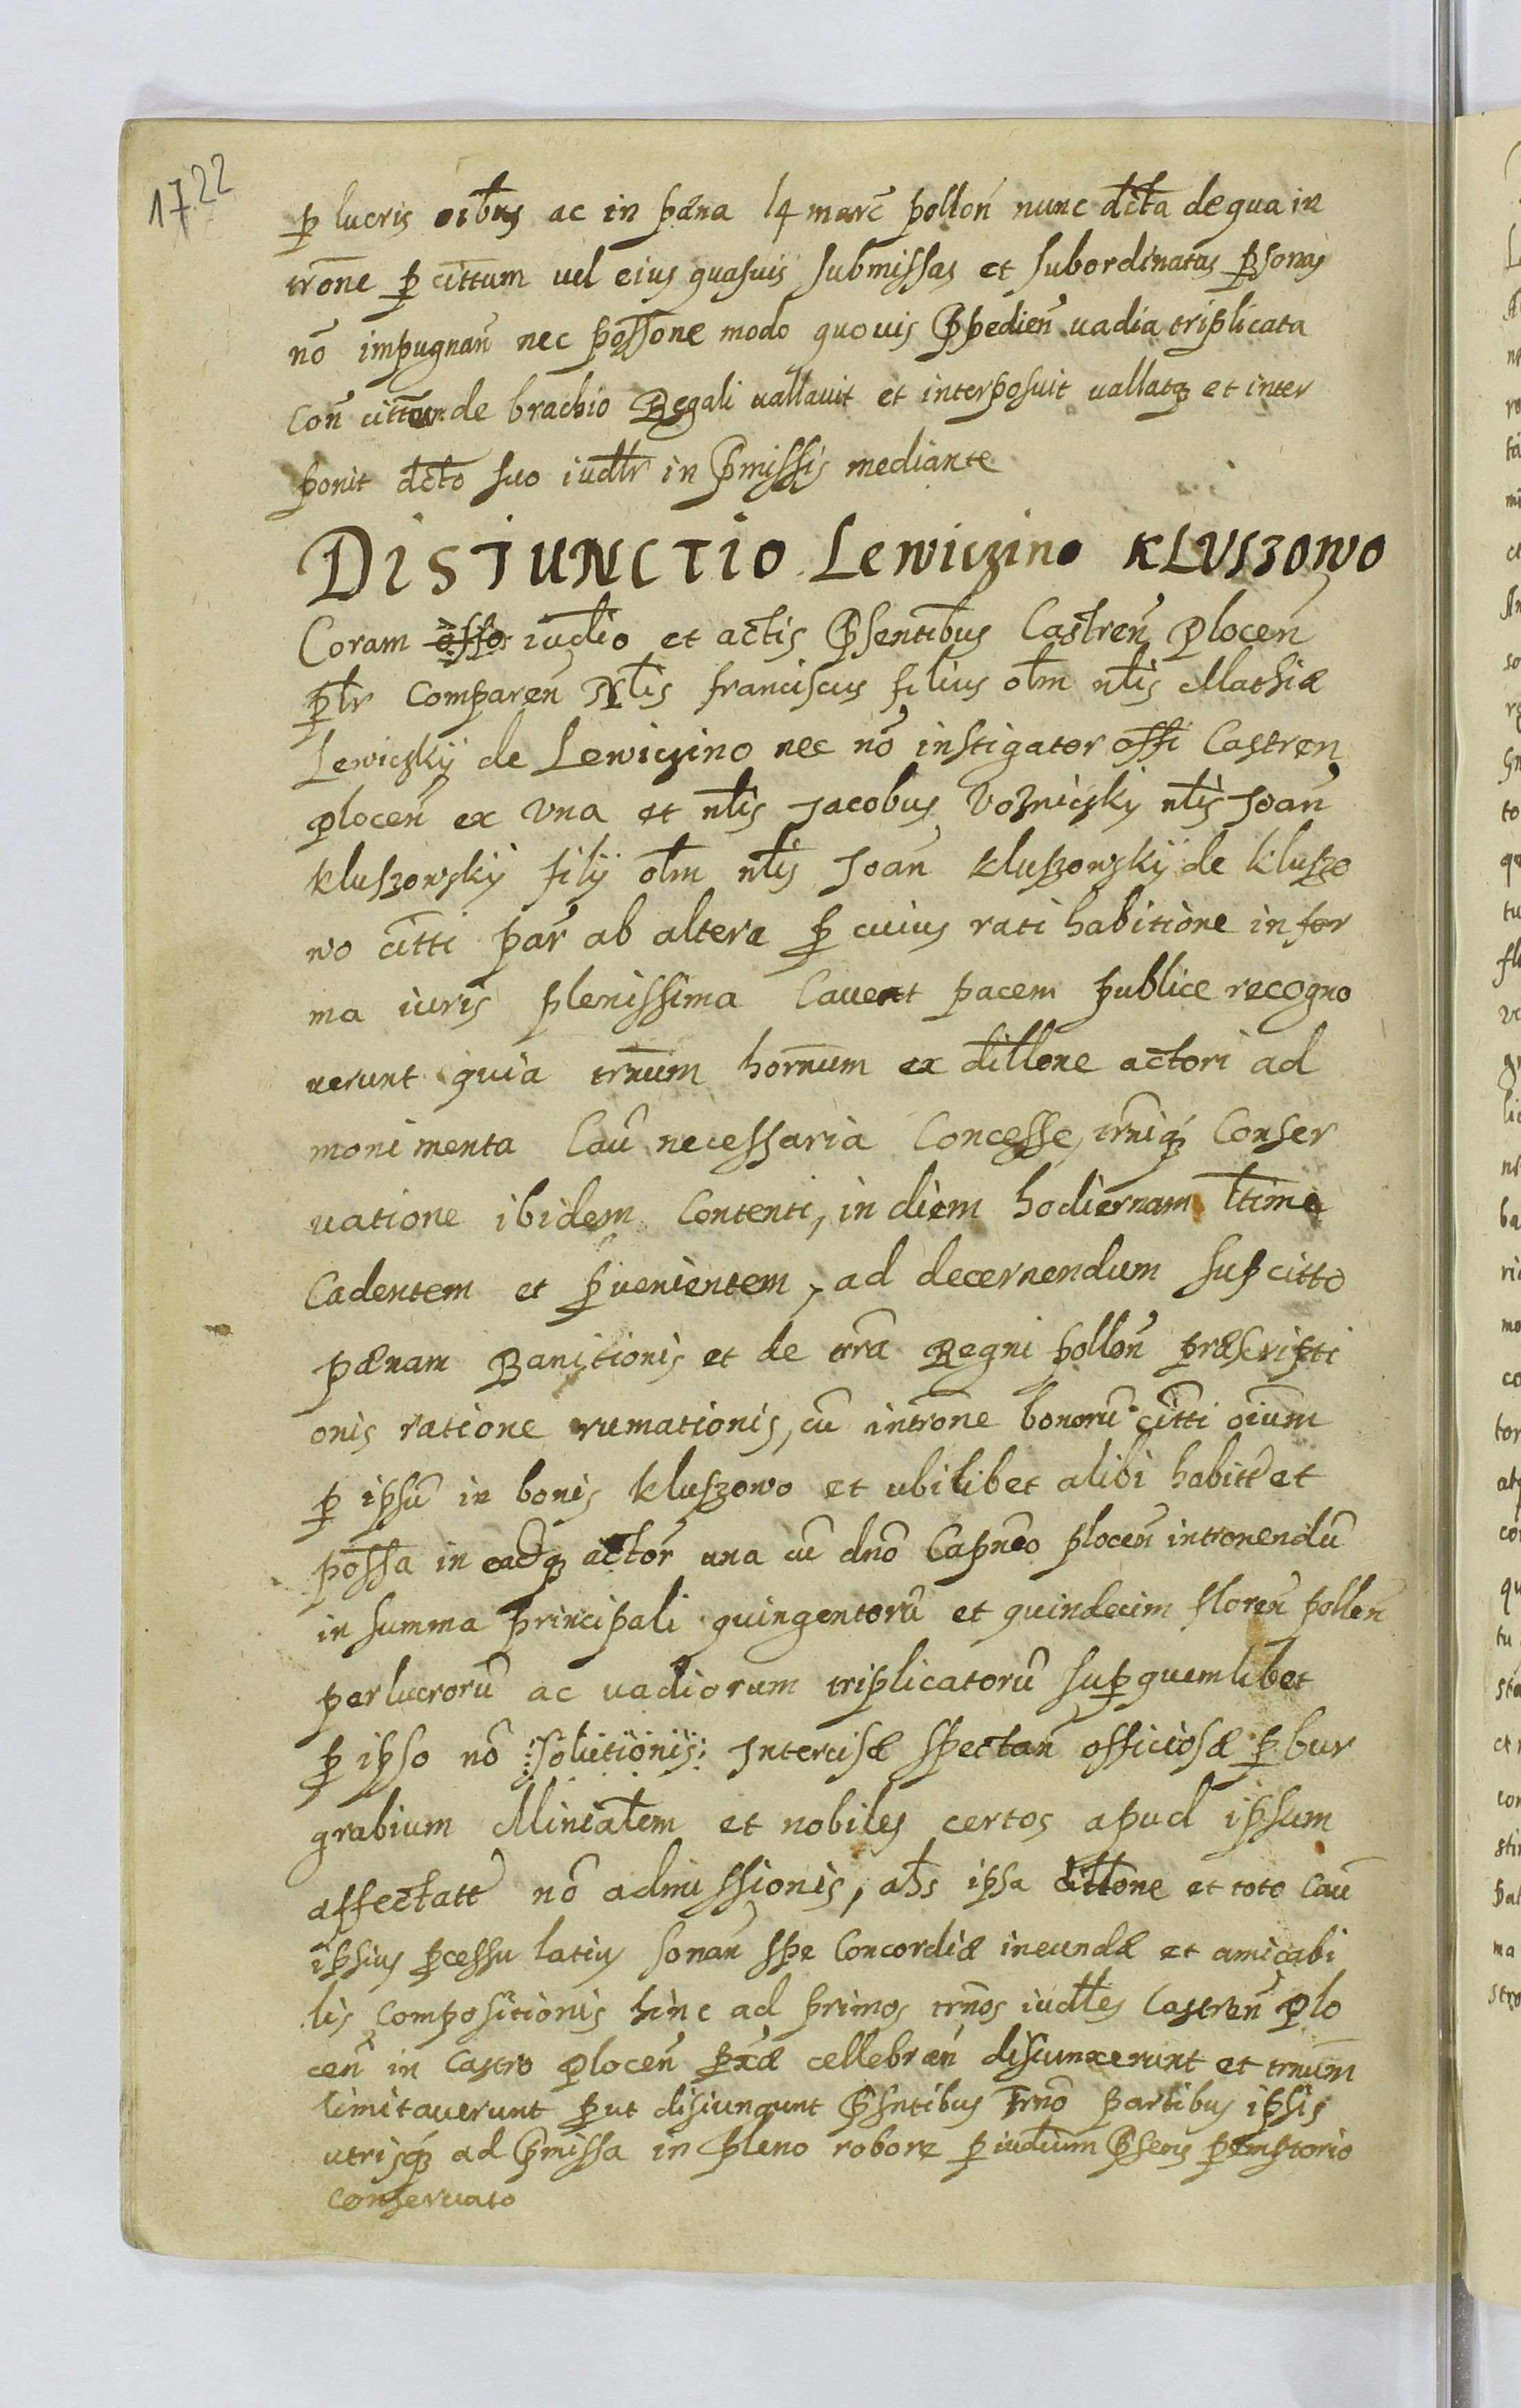 1722
p lucris oibus ac in pæna 14 marc̃ pollon̄ nunc dcta de qua in
trōne p cittum vel eius quasuis submissas et subordinatas psonas
nō impugnan̄ nec possone modo quovis Ppedien̄ vadia triplicata
Con̄ citt̄um de brachio Regali vallavit et interposuit vallatq et inter
ponit dcto suo iudtr in Pmissis mediante
DISIUNCTIO Lewiczino KLUSZOWO
Coram offo iudio et actis Psentibus Castren̄ Plocen̄
ptr Comparen̄ Nlis franciscus filius olm nlis Mathiæ
Lewiczkÿ de Lewiczino nec nō instigator offi Castren̄
plocen̄ ex vna et nlis Jacobus Voznicsky nlis Joan̄
kluszowskÿ filÿ olm nlis Joan̄ kluszowskÿ de kluszo
wo citti par̄ ab altera p cuius rati habitione in for
ma iuris plenissima Cavent pacem publice recogno
verunt quia trn̄um horn̄um ex dillone actori ad
monimenta Cau̅ necessaria Concesse, trn̄iq Conser
vatione ibidem Contenti, in diem hodiernam ltime
Cadentem et pvenientem, ad decernendum sup citto
pænam Banitionis et de trra Regni pollon̄ præscripti
onis ratione rumationis, cu̅ introne bonoru̅ citti oium
p ipsu̅ in bonis kluszowo et ubilibet alibi habitt et
possa in eaqq actor̄ una cu̅ dno̅ Capn̄eo plocen̄ intronendu̅
in summa principali quingentoru̅ et quindecim floren̄ pollen̄
perlucroru̅ ac vadiorum triplicatoru̅ sup quemlibet
p ipso nō solutionis: Intercisæ spectan̄ officiosæ p bur
grabium Mincatem et nobiles certos apud ipsum
affectatt nō admissionis, als ipsa cittone et toto Cau̅
ipsius pcessu latius sonan̄ spe Concordiæ ineundæ et amicabi
lis Compositionis hinc ad primos trn̄os iudlles Castren̄ Plo
cen̄ in Castro Plocen̄ pxæ cellebran̄ disiunxerunt et trn̄um
limitaverunt put disiungunt Psntibus Trno̅ partibus ipsis
utrisq ad Pmissa in pleno robore p iudium Psens pemptorio
conservato